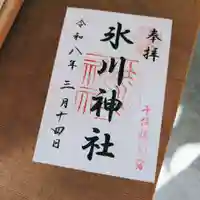 奉拝
氷川神社
令和八年三月十四日